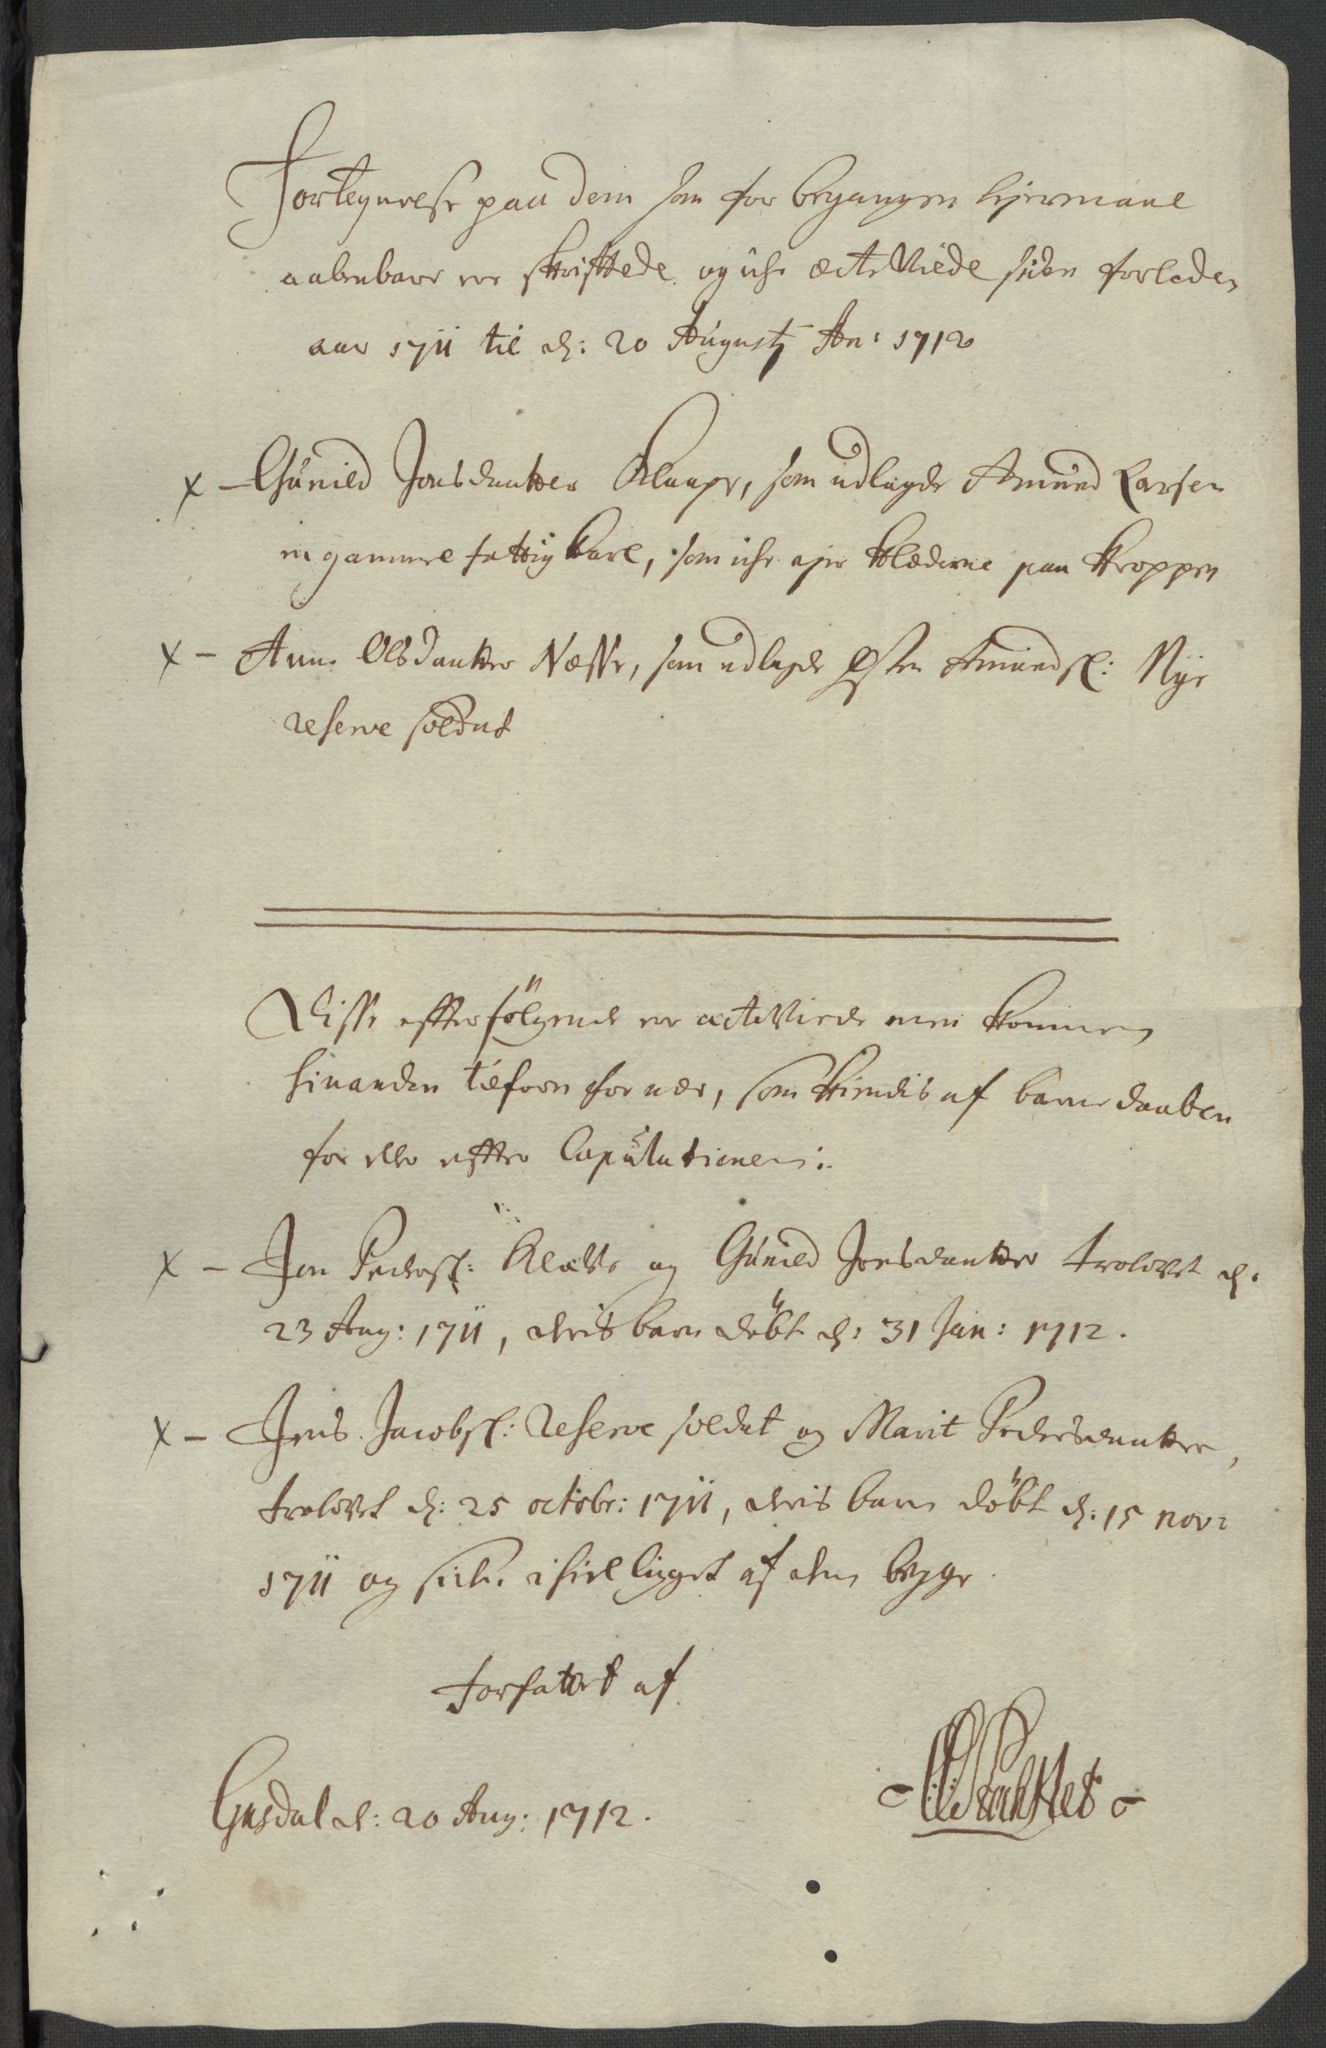 Fortegnelse paa dem som for begangen lejermaal
aabenbare ere skriftede og iche ecteviede siden forleden
aar 1711 til d: 20 Augustj An: 1712
x – Gunild Jonsdaatter Klaape, som udlagde Amund Larsen
en gammel fattig karl, som iche ejer klæderne paa kroppen
x – Anne Olsdaatter Næsse, som udlagde Esten Amundsøn: Nye
reserve soldat
Disse effterfølgende ere ecteviede men kommen
hinanden tilforn for nær, som kiendis af barnedaaben
for eller effter Copulationen:.
x – Jon Pedersøn: Kleve og Gunild Jonsdaatter trolovet d:
23 Aug: 1711, deris barn døbt d: 31 Jan: 1712.
x – Jens Jacobsøn: Reserve soldat og Marit Pedersdaatter,
trolovet d: 25 octobr: 1711, deris barn døbt d: 15 nov:
1711 og siden ihiel ligget af dem begge.
Forfattet af
Gusdal d: 20 Aug: 1712.